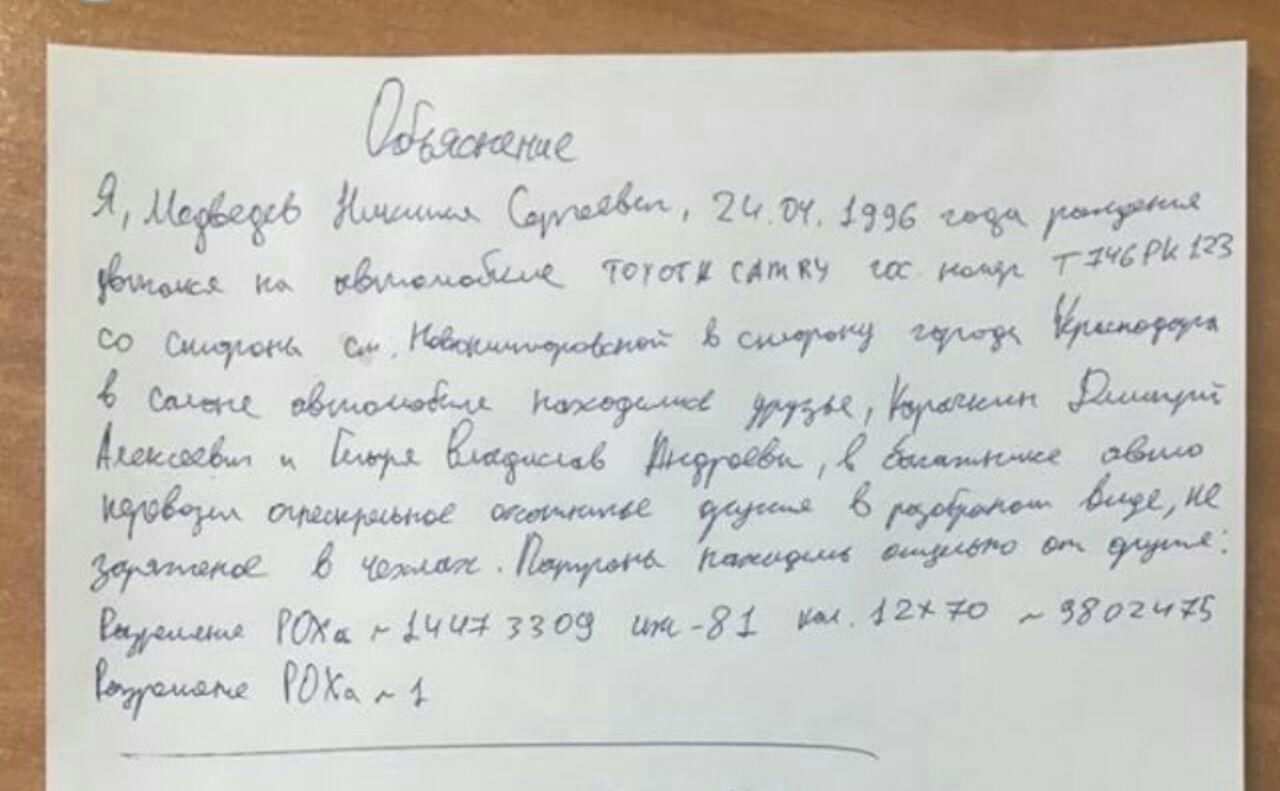 Объяснение
Я, Медведев Никита Сергеевич, 24.04.1996 года рождения
двигался на автомобиле TOYOTA CAMRY гос. номер Т746РК123
со стороны ст. Новотитаровской в сторону города Краснодара
в салоне автомобиля находились друзья, Карачкин Дмитрий
Алексеевич и Владислав Андреевич, в багажнике авто
перевозил огнестрельное охотничье оружие в разобраном виде, не
заряженое в чехлах. Патроны находились отдельно от оружия:
Разрешение РОХа № 14473309 иж-81 кал. 12х70 № 9802475
Разрешение РОХа № 1